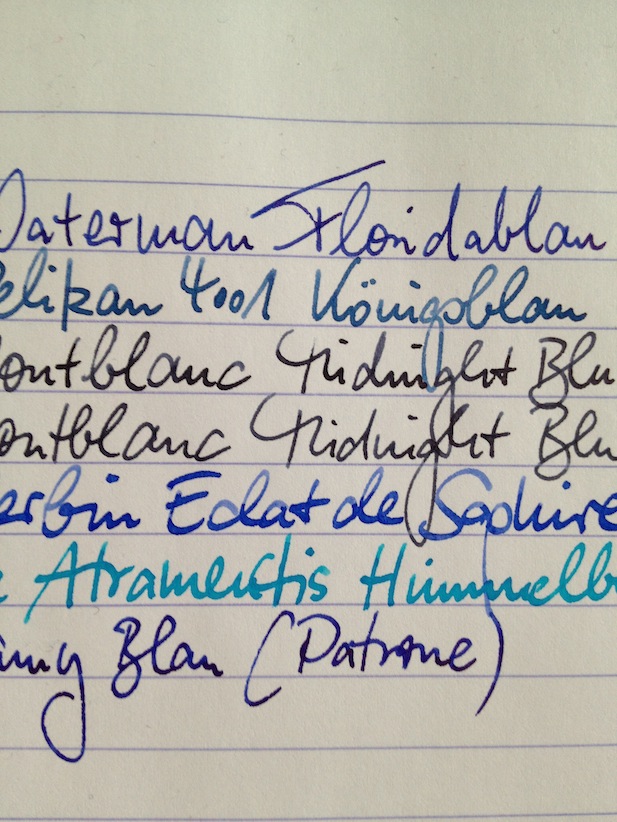 Waterman Floridablau
Pelikan 4001 Königsblau
Montblanc Midnight Blu
Montblanc Midnight Blu
erbin Eclat de Saphire
Atramentis Himmelb
amy Blau (Patrone)